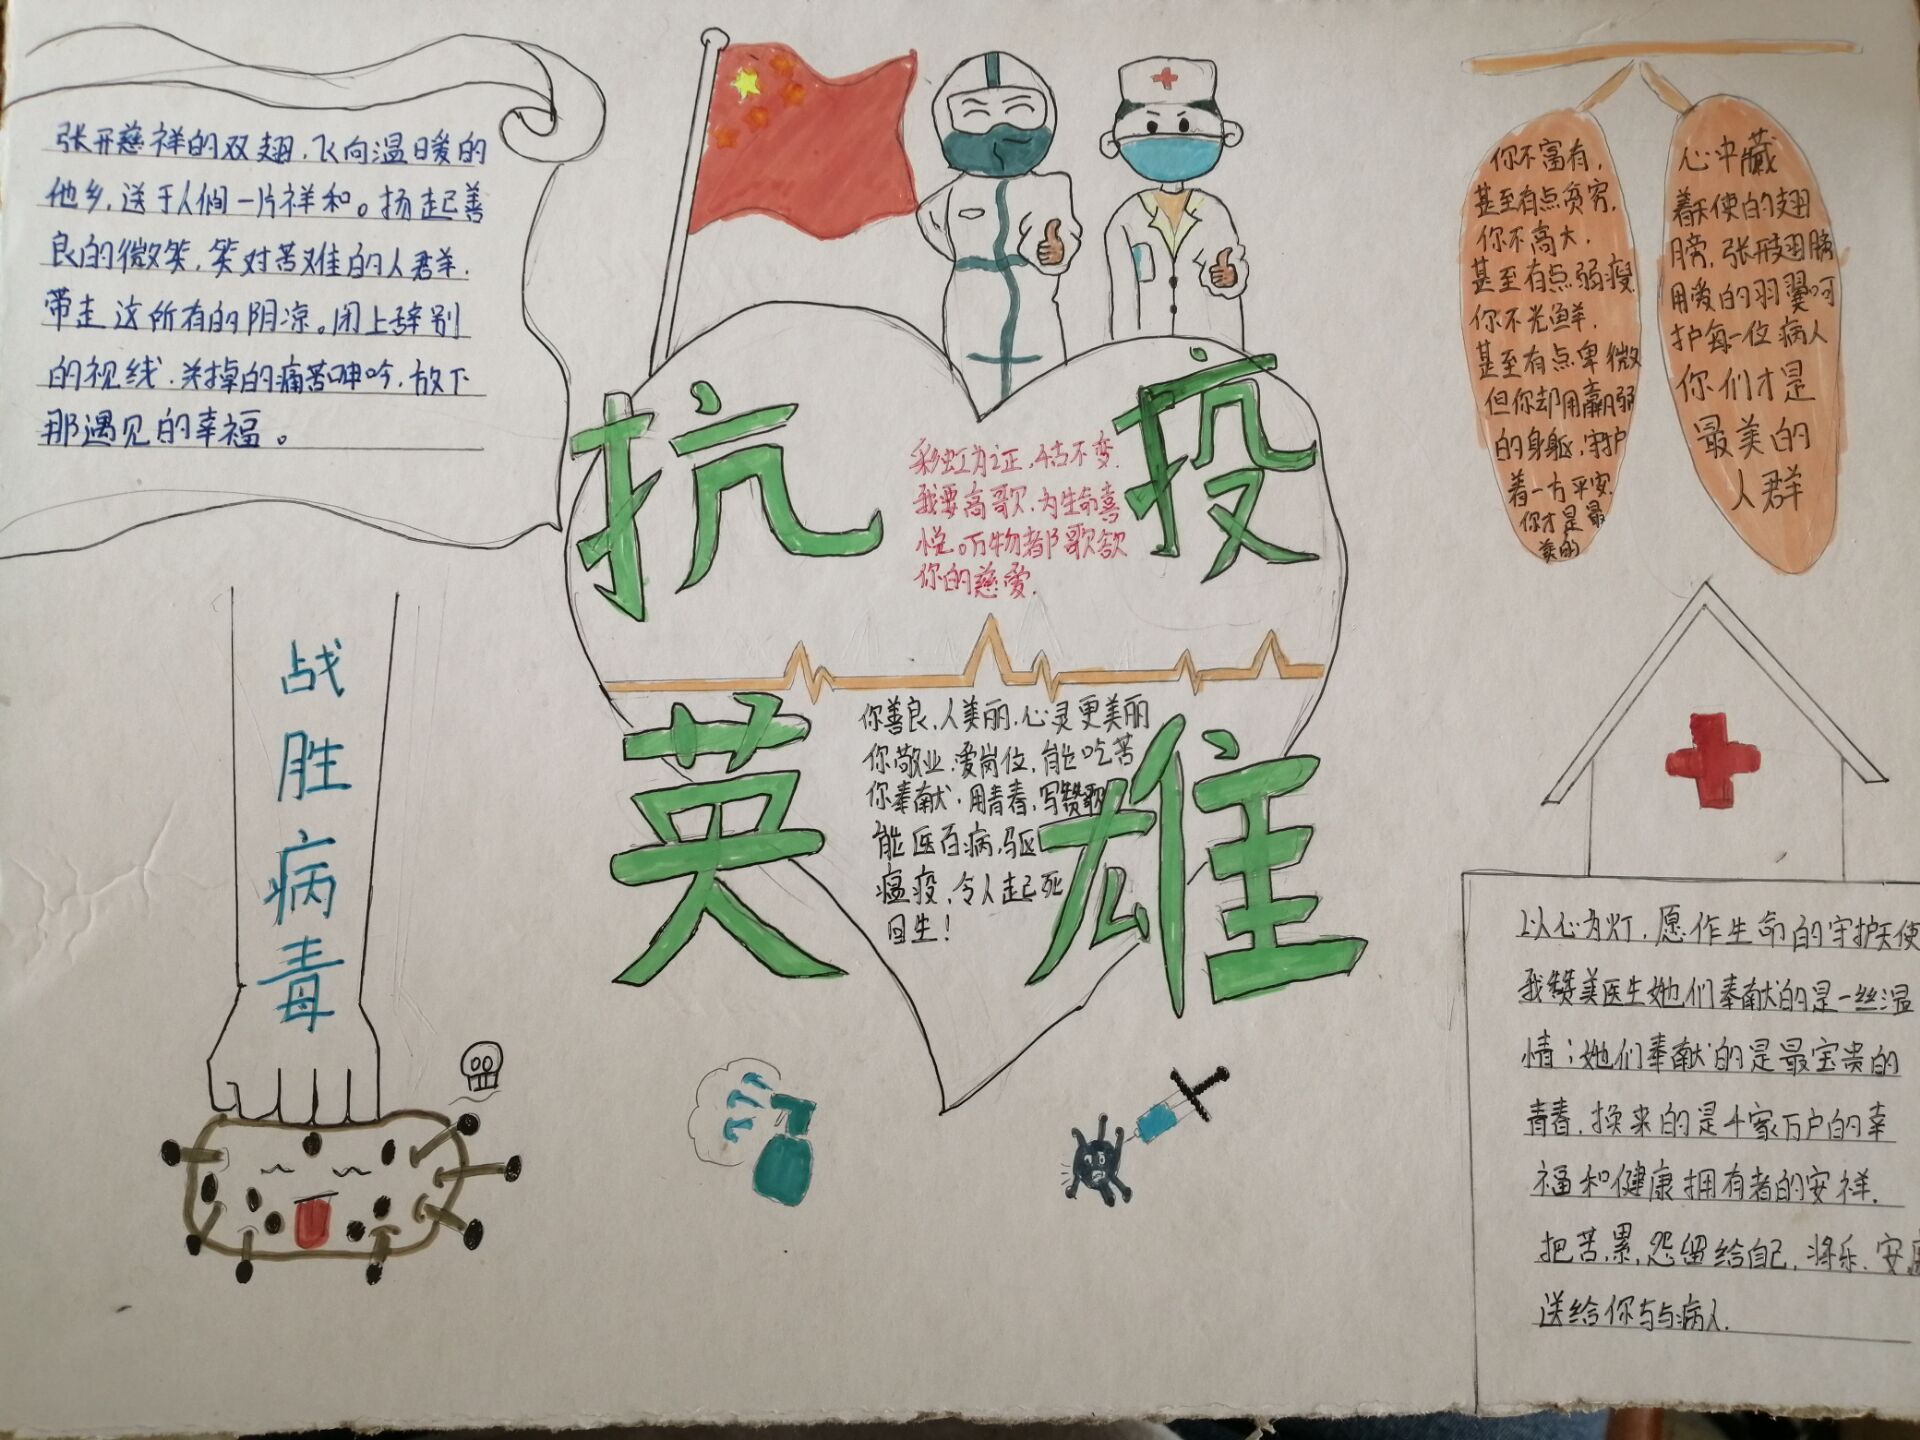 张开慈祥的双翅，飞向温暖的
他乡，送于人间一片祥和。扬起善
良的微笑，笑对苦难的人群，
带走这所有的阴凉。闭上辞别
的视线，关掉的痛苦呻吟，放下
那遇见的幸福。
抗疫
彩虹为证，
我要高歌，为生命喜
悦。万物都歌欲
你的慈爱。
英雄
你善良，人美丽，心灵更美丽
你敬业，爱岗位，能吃苦
你奉献，用青春，写赞歌
能医百病，驱
瘟疫，令人起死
回生！
你不富有，
甚至有点贫穷，
你不高大，
甚至有点弱瘦
你不光鲜，
甚至有点卑微
但你却用羸弱
的身躯，守护
着一方平安
你才是最
美的
心中藏
着天使的翅
膀，张开翅膀
用爱的羽翼呵
护每一位病人
你们才是
最美的
人群
战
胜
病
毒
以心为灯，愿作生命的守护天使
我赞美医生她们奉献的是一丝温
情；她们奉献的是最宝贵的
青春，换来的是千家万户的幸
福和健康拥有者的安祥，
把苦，累，怨留给自己，将乐，安
送给你与与病人．